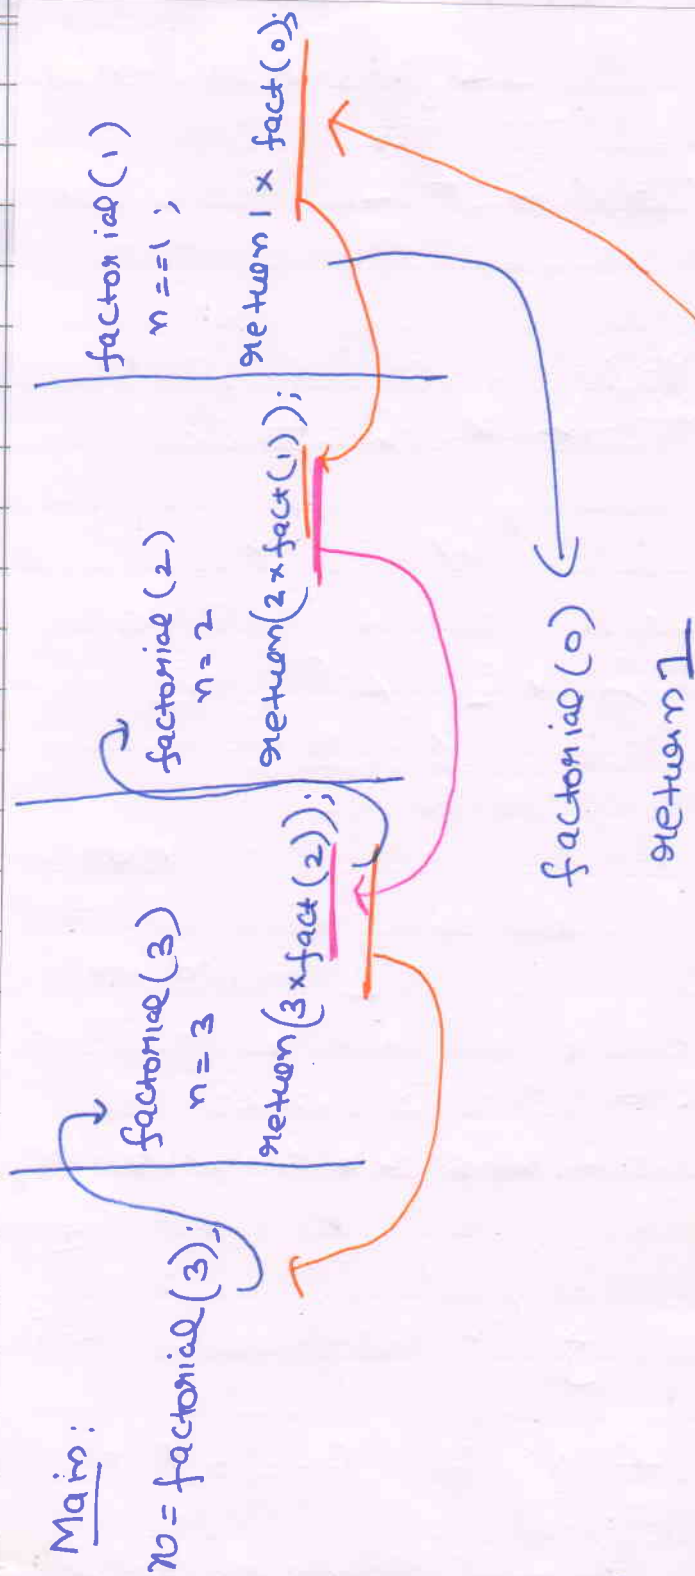 Main:
x = factorial(3);
factorial(3)
n = 3
return(3 x fact(2));
factorial(2)
n = 2
return(2 x fact(1));
factorial(1)
n == 1;
return 1 x fact(0);
factorial(0)
return 1